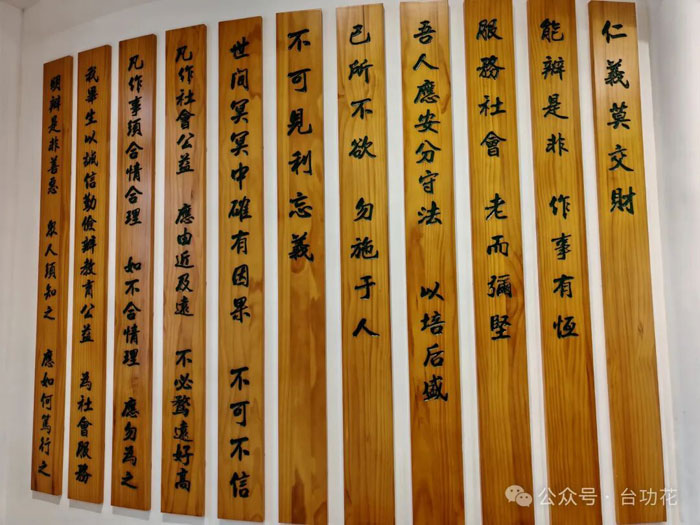 仁義莫交財
能辦是非 作事有恆
服務社會 老而彌堅
吾人應安分守法 以培后盛
己所不欲 勿施于人
不可見利忘義
世间冥冥中確有因果 不可不信
凡作社會公益 應由近及遠 不必骛遠好高
凡作事須合情合理 如不合情理 應勿為之
我畢生以誠信勤儉辦教育公益 為社會服務
明辦是非善惡 眾人須知之 應如何篤行之
公众号·台功花